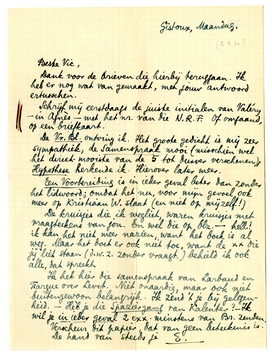 Gistoux, Maandag.
Beste Vic,
Dank voor de brieven die hierbij teruggaan. Ik
heb er nog wat van gemaakt, met jouw antwoord
ertusschen.
Schrijf mij eerstdaags de juiste initialen van Valéry
in Après — met het nr. van die N.R.F. Of omgaand,
op een briefkaart.
De Vr. Bl. ontving ik. Het groote gedicht is mij zeer
sympathiek, de Samenspraak mooi (misschien wel
het direct mooiste van de 5 tot dusver verschenen).
Hypothese herkende ik. Hierover later meer.
Een voorbereiding is in ieder geval beter dan zonder
het lidwoord; omdat het nu, voor mijn gevoel ook
meer op Kristiaan W. slaat (en niet op mijzelf!)
De kruisjes die ik wegliet, waren kruisjes met
vraagteekens van jou. En wel die op blz. — half!
ik kan het niet meer nagaan, want het boek is al
weg. Maar het boek er ook niet toe, want de xx die
jij liet staan (d.w.z. zonder vraagt.) behield ik ook
alle, dat spreekt.
Ik heb hier die samenspraak van Larbaud en
Fargue over Levet. Niet onaardig, maar ook niet
buitengewoon belangrijk. Ik zend 't je bij gelegen-
heid. — Heb je die Spaziergang van Ruleuter? Ik
wil je in ieder geval 2 exx. minstens van Br. zenden.
Verscheur dit papier, dat van geen beteekenis is.
De hand van steeds je E.